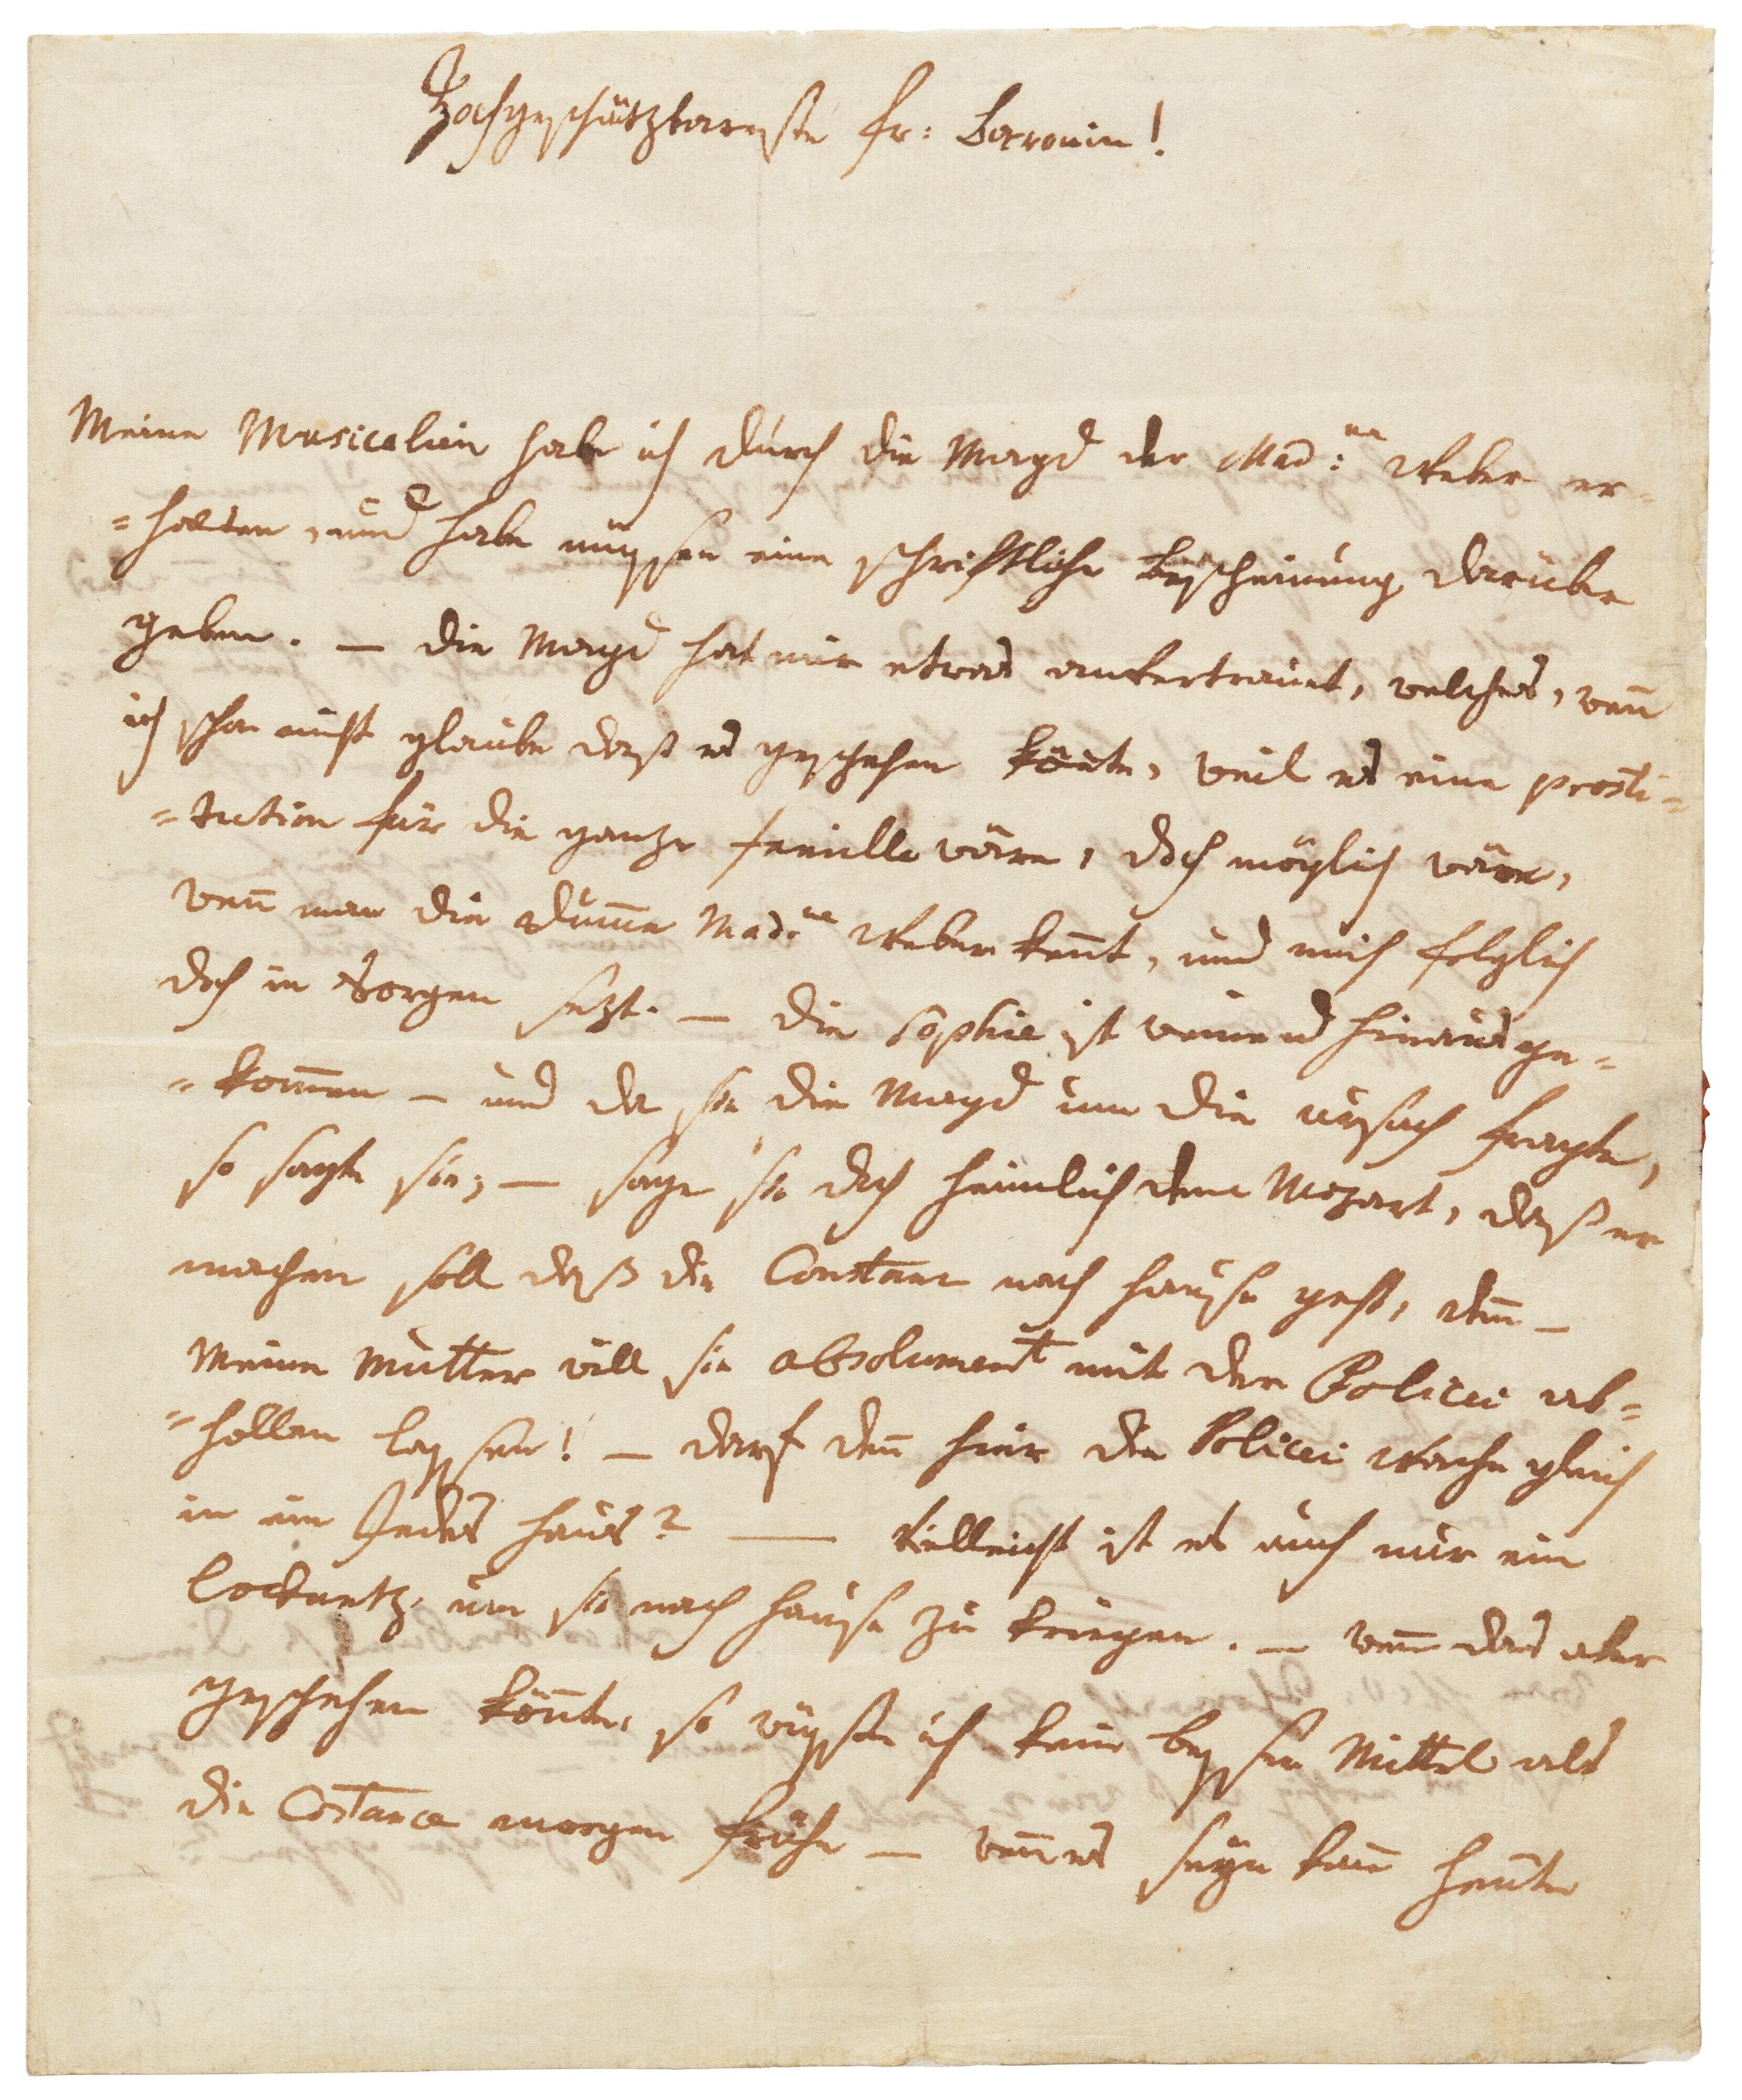 Hochgeschätzbareste fr: Baronin!
Meine Musicalien habe ich durch die Magd der Mad:me Weber er-
=halten, und habe müssen eine schriftliche bescheinung darüber
geben. — die Magd hat mir etwas anvertrauet, welches, wenn̄
ich schon nicht glaube daß es geschehen kön̄te, weil es eine prosti-
=tution für die ganze familie wäre, doch möglich wäre,
wen̄ man die dum̄e Mad:me Weber ken̄t, und mich folglich
doch in Sorgen sezt. — die Sophie ist weinend hinausge=
=kom̄en — und da sie die Magd um die ursach fragte,
so sagte sie; — sage sie doch heimlich dem Mozart, daß er
machen soll daß die Constanz nach hause geht, den̄ —
Meine Mutter will sie absolument mit der Policei ab=
=hollen lassen! — darf den̄ hier die Policei Wache gleich
in ein Jedes haus? — Vielleicht ist es auch nur ein
locknetz, um sie nach hause zu kriegen. — wen̄ das aber
geschehen kön̄te, so wüsste ich kein besser Mittel als
die Costance morgen frühe — wen̄ es seyn kan̄ heute